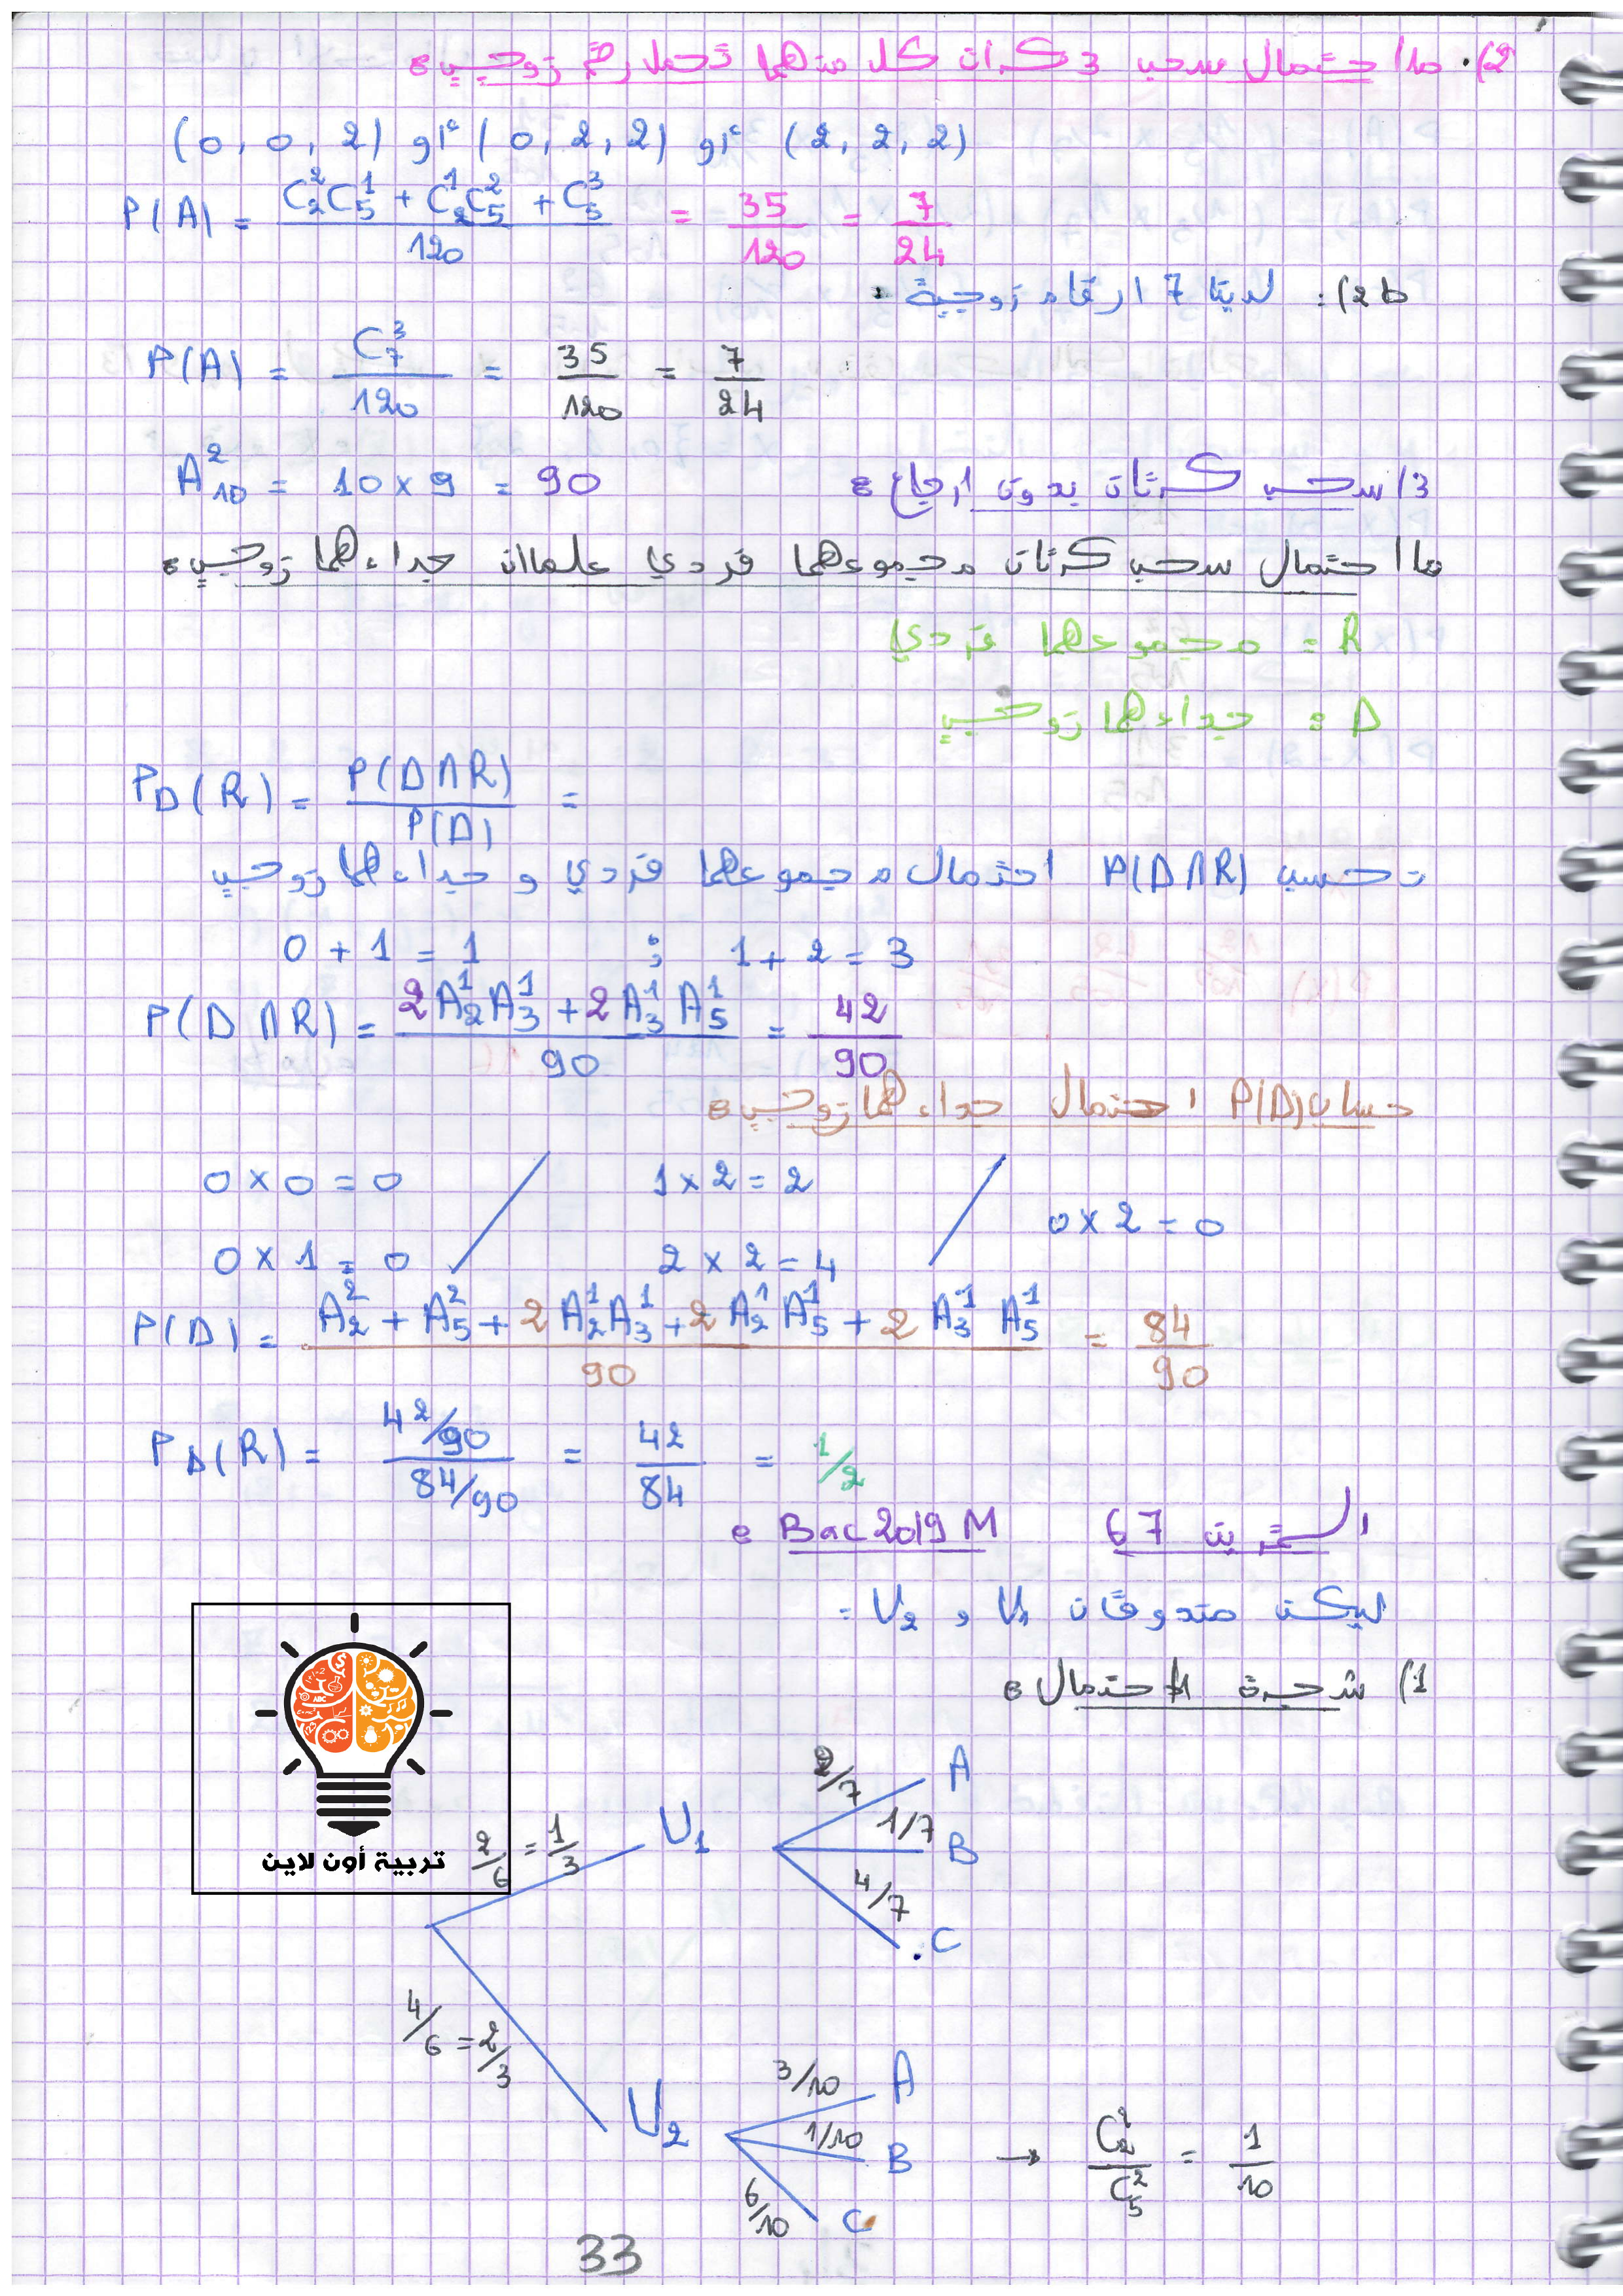 2). ما احتمال سحب 3 كرات كل منهما تحمل رقم زوجي:
(0, 0, 2) أو (0, 2, 2) أو (2, 2, 2)
P(A) = (C_2^2 C_5^1 + C_2^1 C_5^2 + C_5^3)/120 = 35/120 = 7/24
2b): لدينا 7 ارقام زوجية:
P(A) = C_7^3/120 = 35/120 = 7/24
3/ سحب كرتان بدون ارجاع:
A_10^2 = 10 × 9 = 90
ما احتمال سحب كرتان مجموعهما فردي علما ان جداءهما زوجي:
R: مجموعهما فردي
D: جداءهما زوجي
P_D(R) = P(D∩R)/P(D) =
نحسب P(D∩R) احتمال مجموعهما فردي و جداءهما زوجي
0 + 1 = 1 ; 1 + 2 = 3
P(D∩R) = (2A_2^1 A_3^1 + 2A_3^1 A_5^1)/90 = 42/90
حساب P(D) احتمال جداءهما زوجي:
0 × 0 = 0 / 1 × 2 = 2 / 0 × 2 = 0
0 × 1 = 0 2 × 2 = 4
P(D) = (A_2^2 + A_5^2 + 2A_2^1 A_3^1 + 2A_2^1 A_5^1 + 2A_3^1 A_5^1)/90 = 84/90
P_D(R) = (42/90)/(84/90) = 42/84 = 1/2
التمرين 67 Bac 2019 M:
ليكن صندوقان U1 و U2:
1) شجرة الاحتمال:
2/6 = 1/3 U1
2/7 A
1/7 B
4/7 C
4/6 = 2/3 U2
3/10 A
1/10 B → C_2^2/C_5^2 = 1/10
6/10 C
تربية أون لاين
33